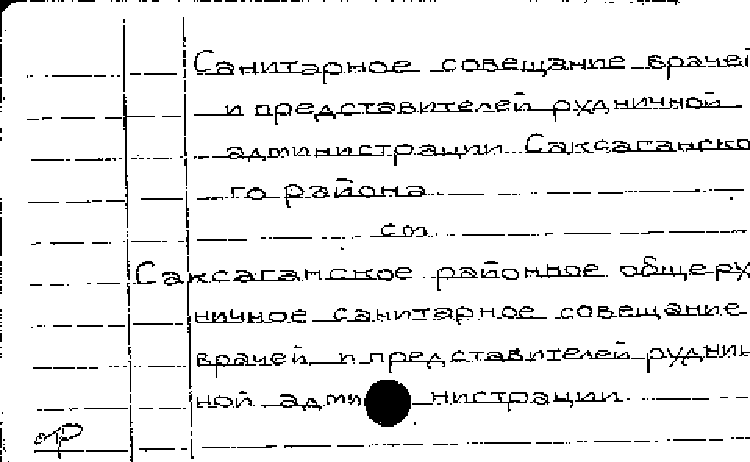 Санитарное совещание врачей
и представителей рудничной
администрации Саксаганско
го района
см
Саксаганское районное общеру
ничное санитарное совещание
врачей и представителей руднич
ной администрации